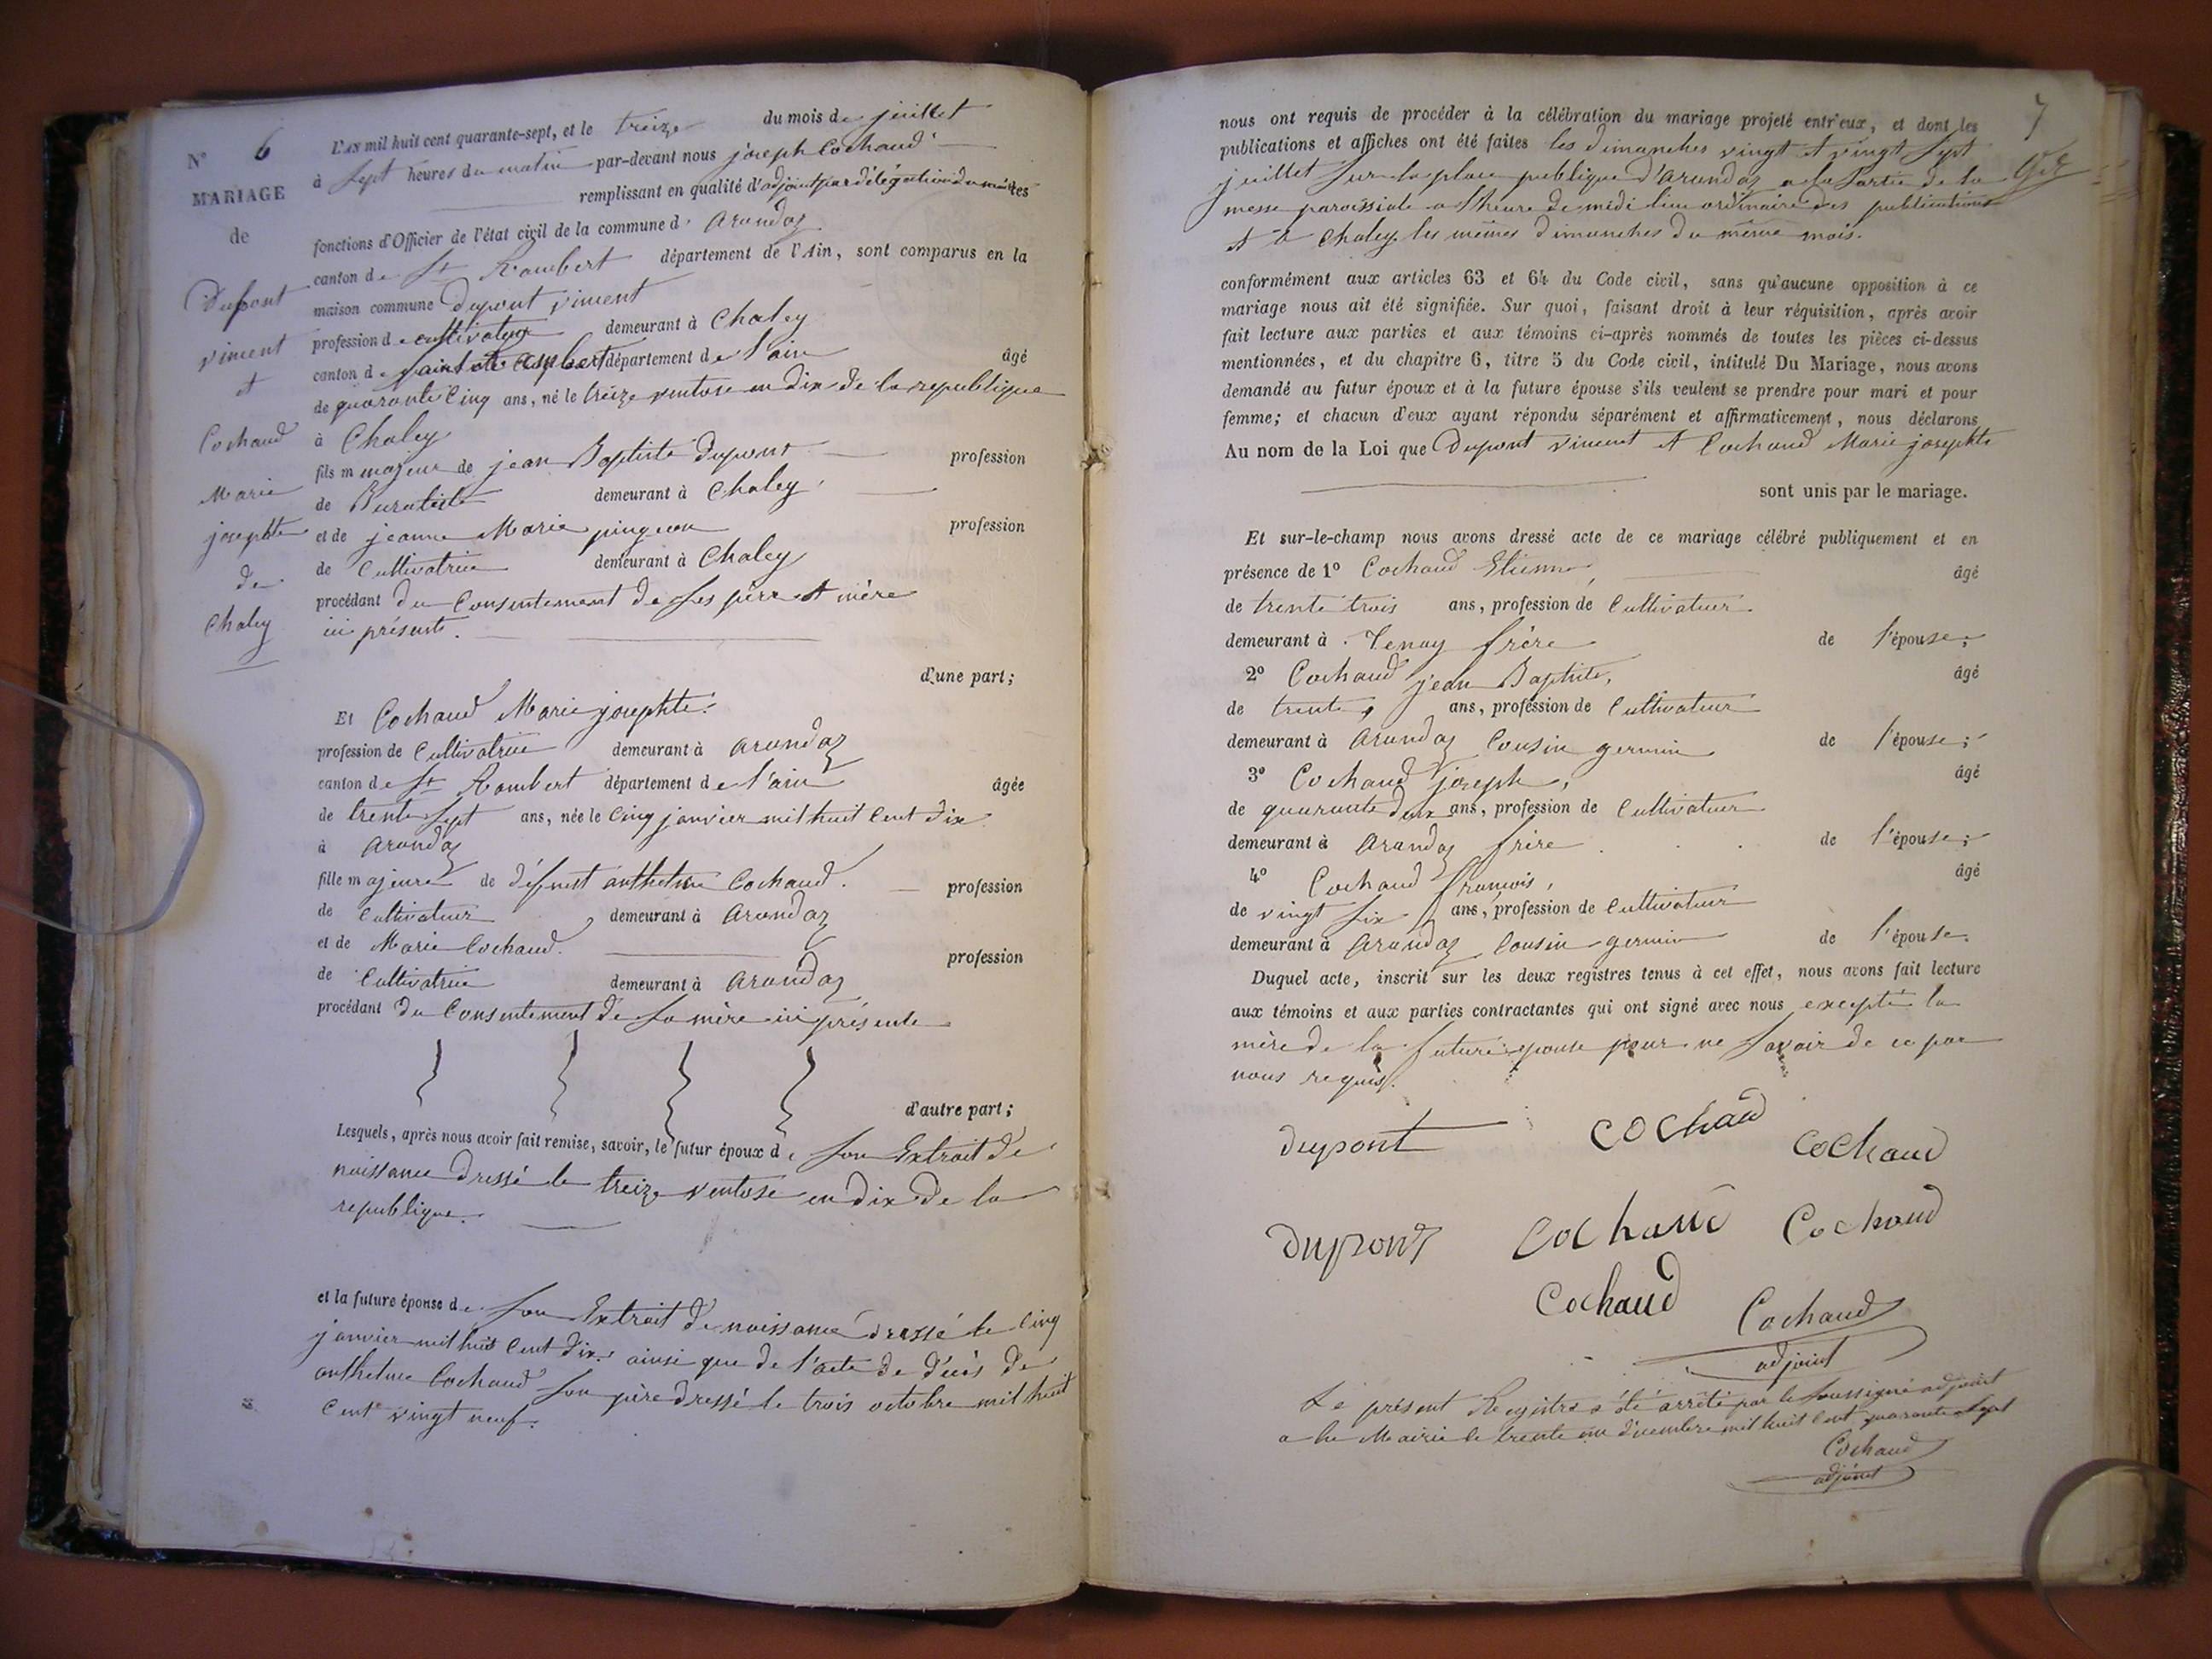 N° 6
MARIAGE
de
Dupont
vincent
et
Cochaud
Marie
josephte
de
Chaley
L'AN mil huit cent quarante-sept, et le treize du mois de juillet
à sept heures du matin par-devant nous joseph Cochaud
remplissant en qualité d'adjoint par délégation du maire les
fonctions d'Officier de l'état civil de la commune d' arandaz
canton de St Rambert département de l'Ain, sont comparus en la
maison commune Dupont vincent
profession de cultivateur demeurant à Chaley
canton de saint département de l'ain âgé
de quarante Cinq ans, né le treize ventose an dix de la republique
à Chaley
fils majeur de jean Baptiste Dupont profession
de demeurant à Chaley
et de jeanne Marie pingeon profession
de Cultivatrice demeurant à Chaley
procédant du Consentement de ses père et mère
ici présents.
d'une part;
Et Cochaud Marie josephte
profession de Cultivatrice demeurant à arandaz
canton de St Rambert département de l'ain âgée
de trente sept ans, née le Cinq janvier mil huit Cent dix
à arandaz
fille majeure de défunt anthelme Cochaud. profession
de Cultivateur demeurant à arandaz
et de Marie Cochaud. profession
de Cultivatrice demeurant à arandaz
procédant du Consentement de sa mère ici présente
d'autre part;
Lesquels, après nous avoir fait remise, savoir, le futur époux de son Extrait de
naissance dressé le treize ventose an dix de la
republique.
et la future épouse de son Extrait de naissance dressé le Cinq
janvier mil huit Cent dix. ainsi que de l'acte de décès de
anthelme Cochaud son père dressé le trois octobre mil huit
Cent vingt neuf.
7
nous ont requis de procéder à la célébration du mariage projeté entr'eux, et dont les
publications et affiches ont été faites les dimanches vingt et vingt sept
juillet sur la place publique d'arandaz a la Sortie de la
messe paroissiale a l'heure de midi lieu ordinaire des publications
et a Chaley les mêmes dimanches du même mois.
conformément aux articles 63 et 64 du Code civil, sans qu'aucune opposition à ce
mariage nous ait été signifiée. Sur quoi, faisant droit à leur réquisition, après avoir
fait lecture aux parties et aux témoins ci-après nommés de toutes les pièces ci-dessus
mentionnées, et du chapitre 6, titre 5 du Code civil, intitulé Du Mariage, nous avons
demandé au futur époux et à la future épouse s'ils veulent se prendre pour mari et pour
femme; et chacun d'eux ayant répondu séparément et affirmativement, nous déclarons
Au nom de la Loi que Dupont vincent et Cochaud Marie josephte
sont unis par le mariage.
Et sur-le-champ nous avons dressé acte de ce mariage célébré publiquement et en
présence de 1° Cochaud Etienne, âgé
de trente trois ans, profession de Cultivateur
demeurant à Tenay frère de l'épouse;
2° Cochaud jean Baptiste, âgé
de trente, ans, profession de Cultivateur
demeurant à arandaz Cousin germin de l'épouse;
3° Cochaud joseph, âgé
de quarante deux ans, profession de Cultivateur
demeurant à arandaz frère de l'épouse;
4° Cochaud françois, âgé
de vingt six ans, profession de Cultivateur
demeurant à arandaz Cousin germin de l'épouse.
Duquel acte, inscrit sur les deux registres tenus à cet effet, nous avons fait lecture
aux témoins et aux parties contractantes qui ont signé avec nous excepté la
mère de la future épouse pour ne savoir de ce par
nous requis.
dupont cochaud cochaud
Dupont Cochaud Cochaud
Cochaud Cochaud
adjoint
Le présent Registre a été arrêté par le soussigné adjoint
a la Mairie le trente un décembre mil huit Cent quarante sept
Cochaud
adjoint